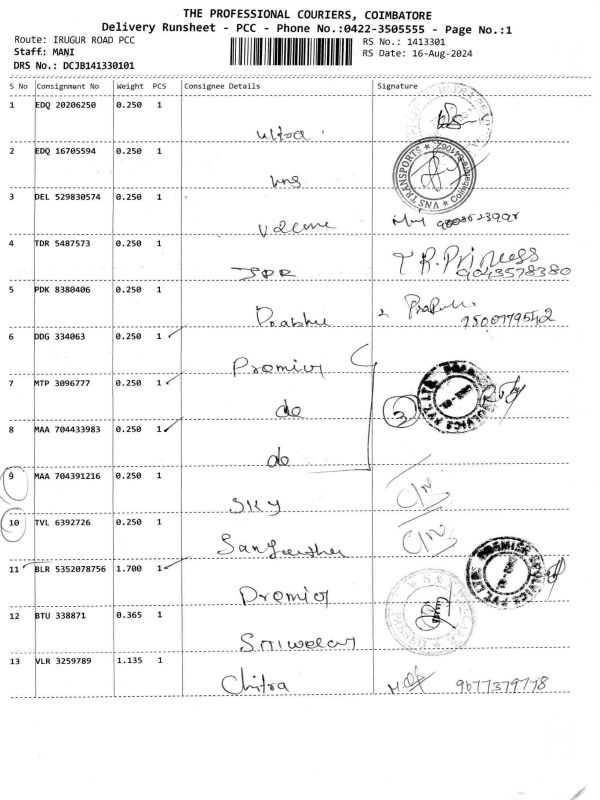 THE PROFESSIONAL COURIERS, COIMBATORE
Delivery Runsheet - PCC - Phone No.:0422-3505555 - Page No.:1
Route: IRUGUR ROAD PCC RS No.: 1413301
Staff.: MANI RS Date: 16-Aug-2024
DRS No.: DCJB141330101
S No Consignment No Weight PCS Consignee Details Signature
1 EDQ 20206250 0.250 1
Ultra
2 EDQ 16705594 0.250 1
VNS TRANSPORTS
vns
3 DEL 529830574 0.250 1
4 TDR 5487573 0.250 1
T R. Princess
JPR 9043578380
5 PDK 8380406 0.250 1
Prabhu
6 DDG 334063 0.250 1
Premier
7 MTP 3096777 0.250 1
do 3
8 MAA 704433983 0.250 1
do
9 MAA 704391216 0.250 1
SKY
10 TVL 6392726 0.250 1
11 BLR 5352078756 1.700 1
Premier
12 BTU 338871 0.365 1
13 VLR 3259789 1.135 1
Chitra 9677379778